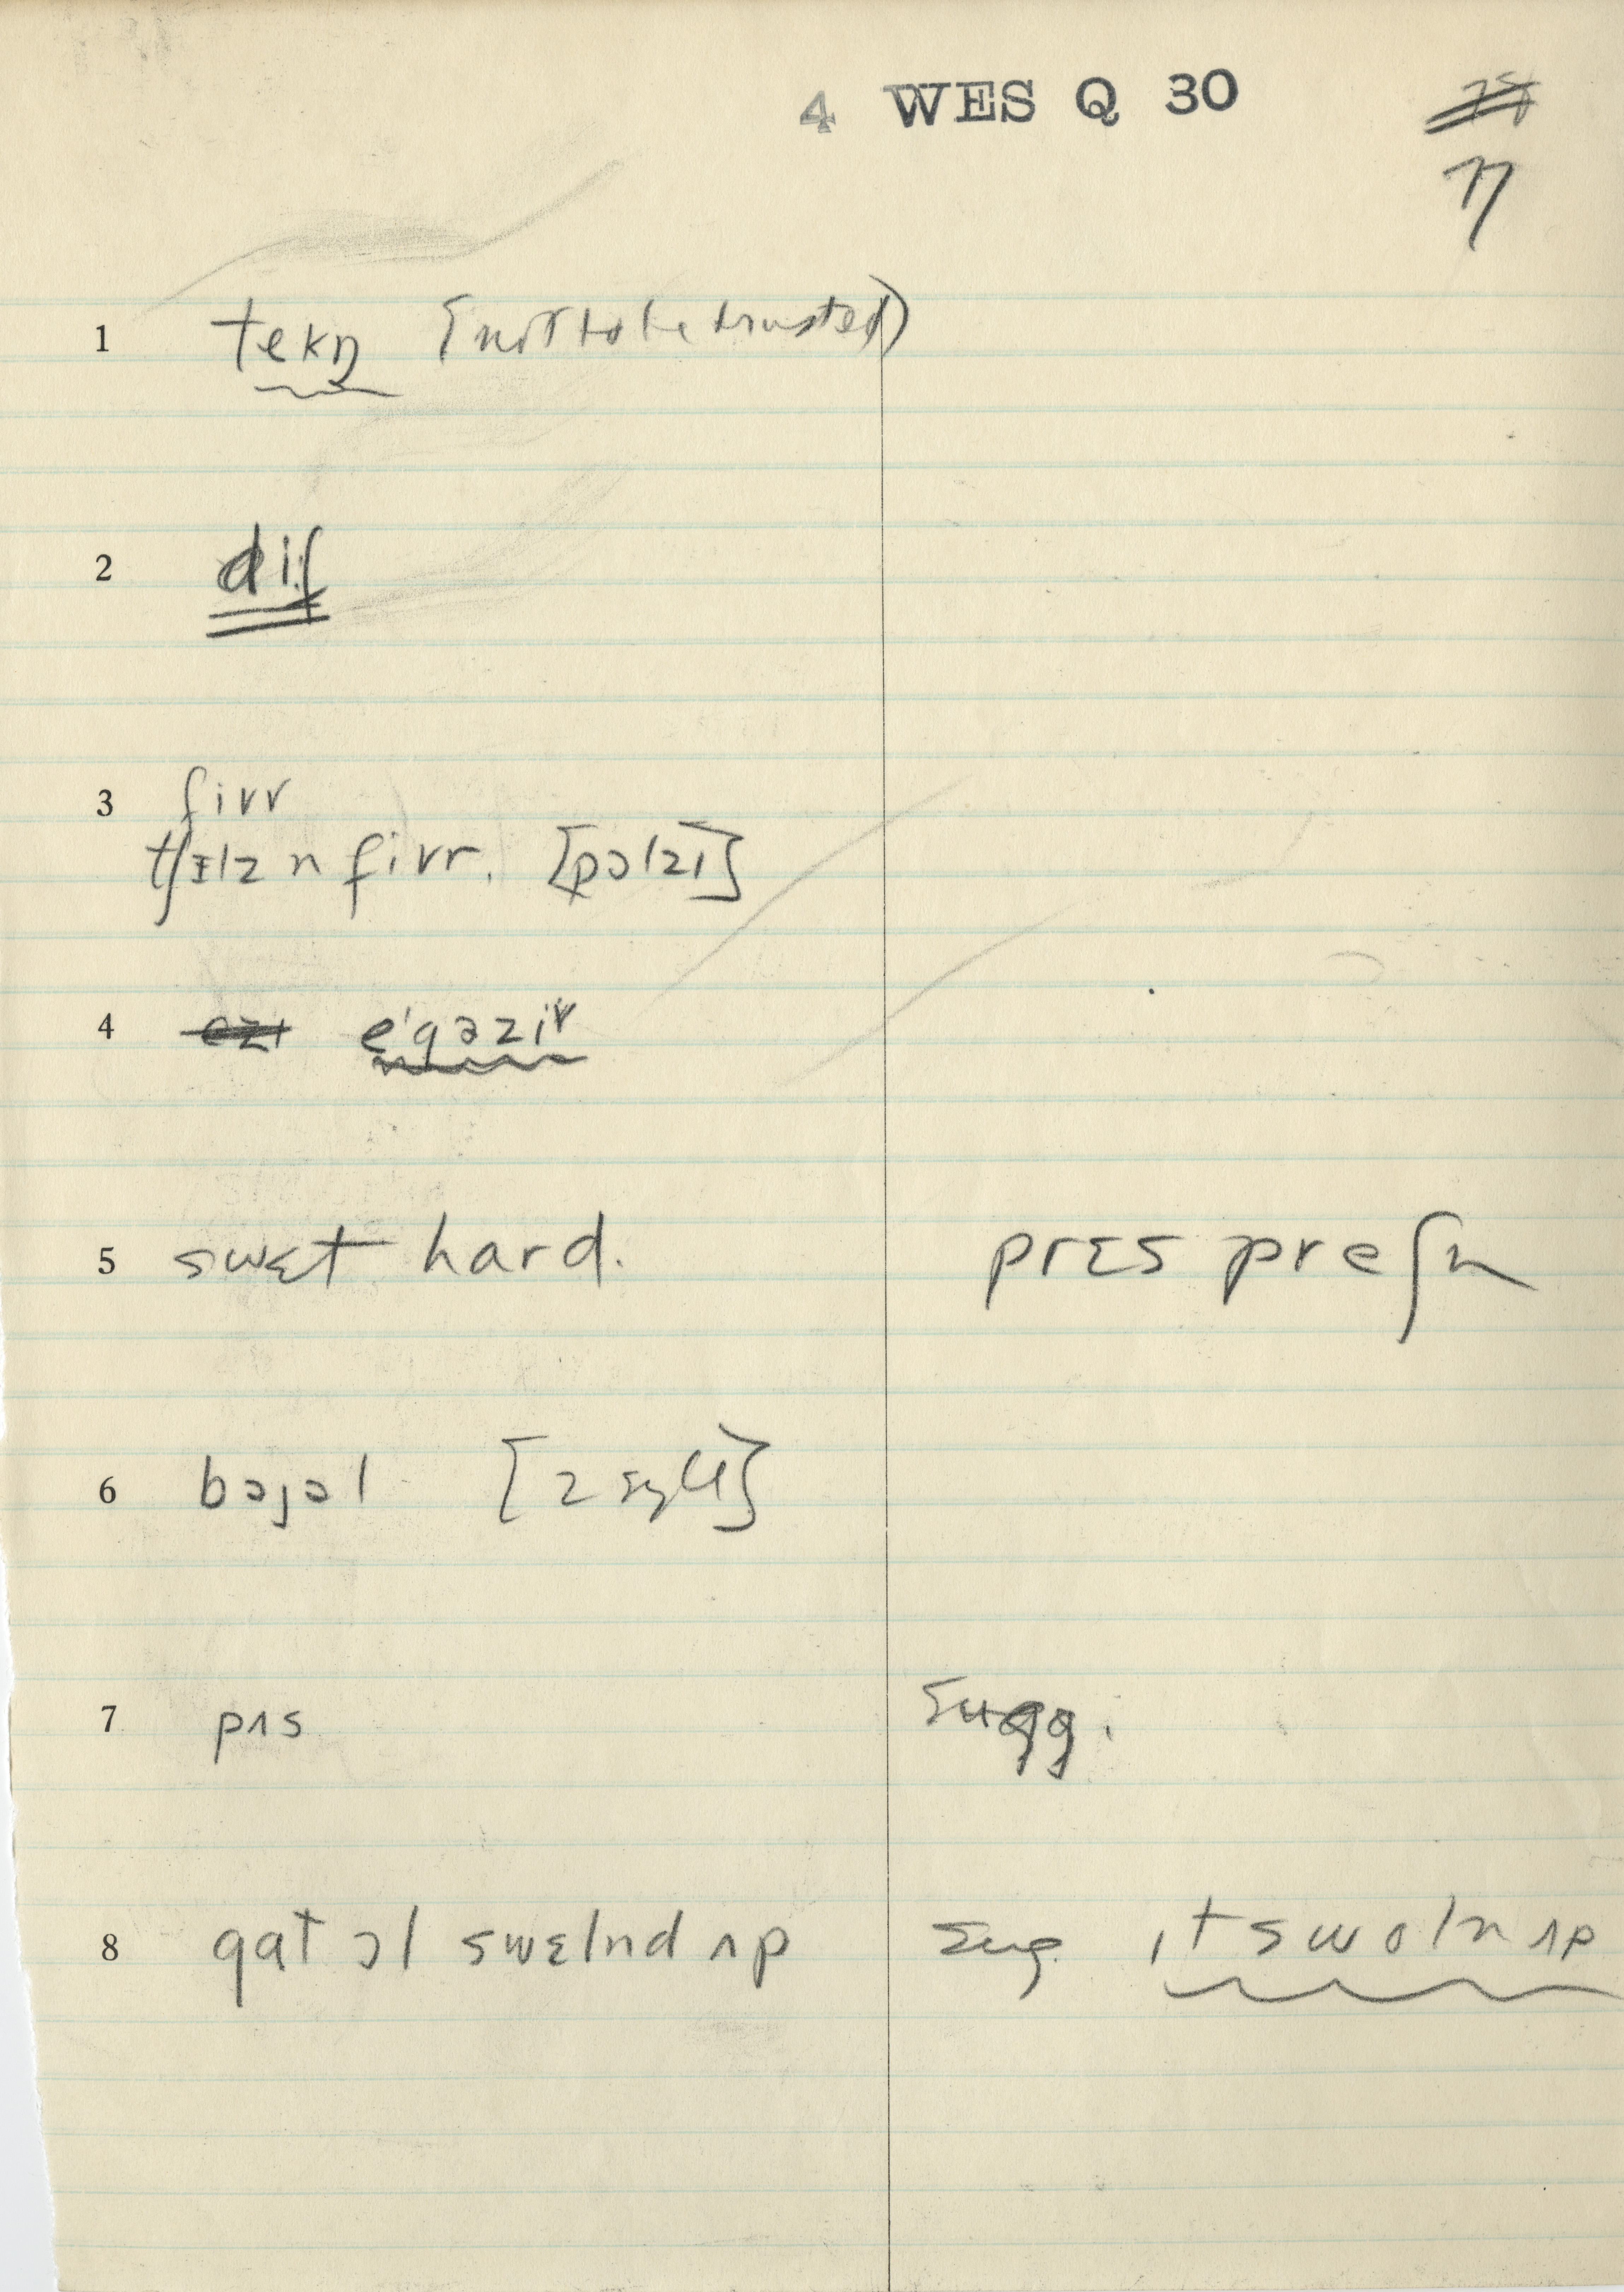 4 WES Q 30
77
1 tekŋ [not to be trusted]
2 dif
3 fivr
tʃɪlz n fivr. [pɔlzi]
4 ezı e'gəzivr
5 swɛt hard. prɛspreʃn
6 bɔjəl [2 syll]
7 pʌs Sugg.
8 gat ɔl swɛlnd ʌp Sug. ɪt swoln ʌp